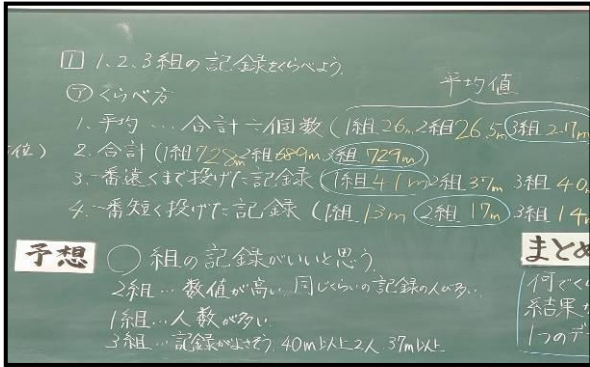 1 1、2、3組の記録をくらべよう。
㋐ くらべ方
平均値
1. 平均 … 合計÷個数 (1組 26m 2組 26.5m 3組 27m
位) 2. 合計 (1組 728m 2組 689m 3組 729m)
3. 一番遠くまで投げた記録 (1組 41m 2組 37m 3組 40m
4. 一番短く投げた記録 (1組 13m 2組 17m 3組 14m
予想 ○組の記録がいいと思う。
2組… 数値が高い 同じくらいの記録の人が多い
1組… 人数が多い
3組… 記録がよさそう 40m以上2人 37m以上
まとめ
何でくら
結果
1つのデー